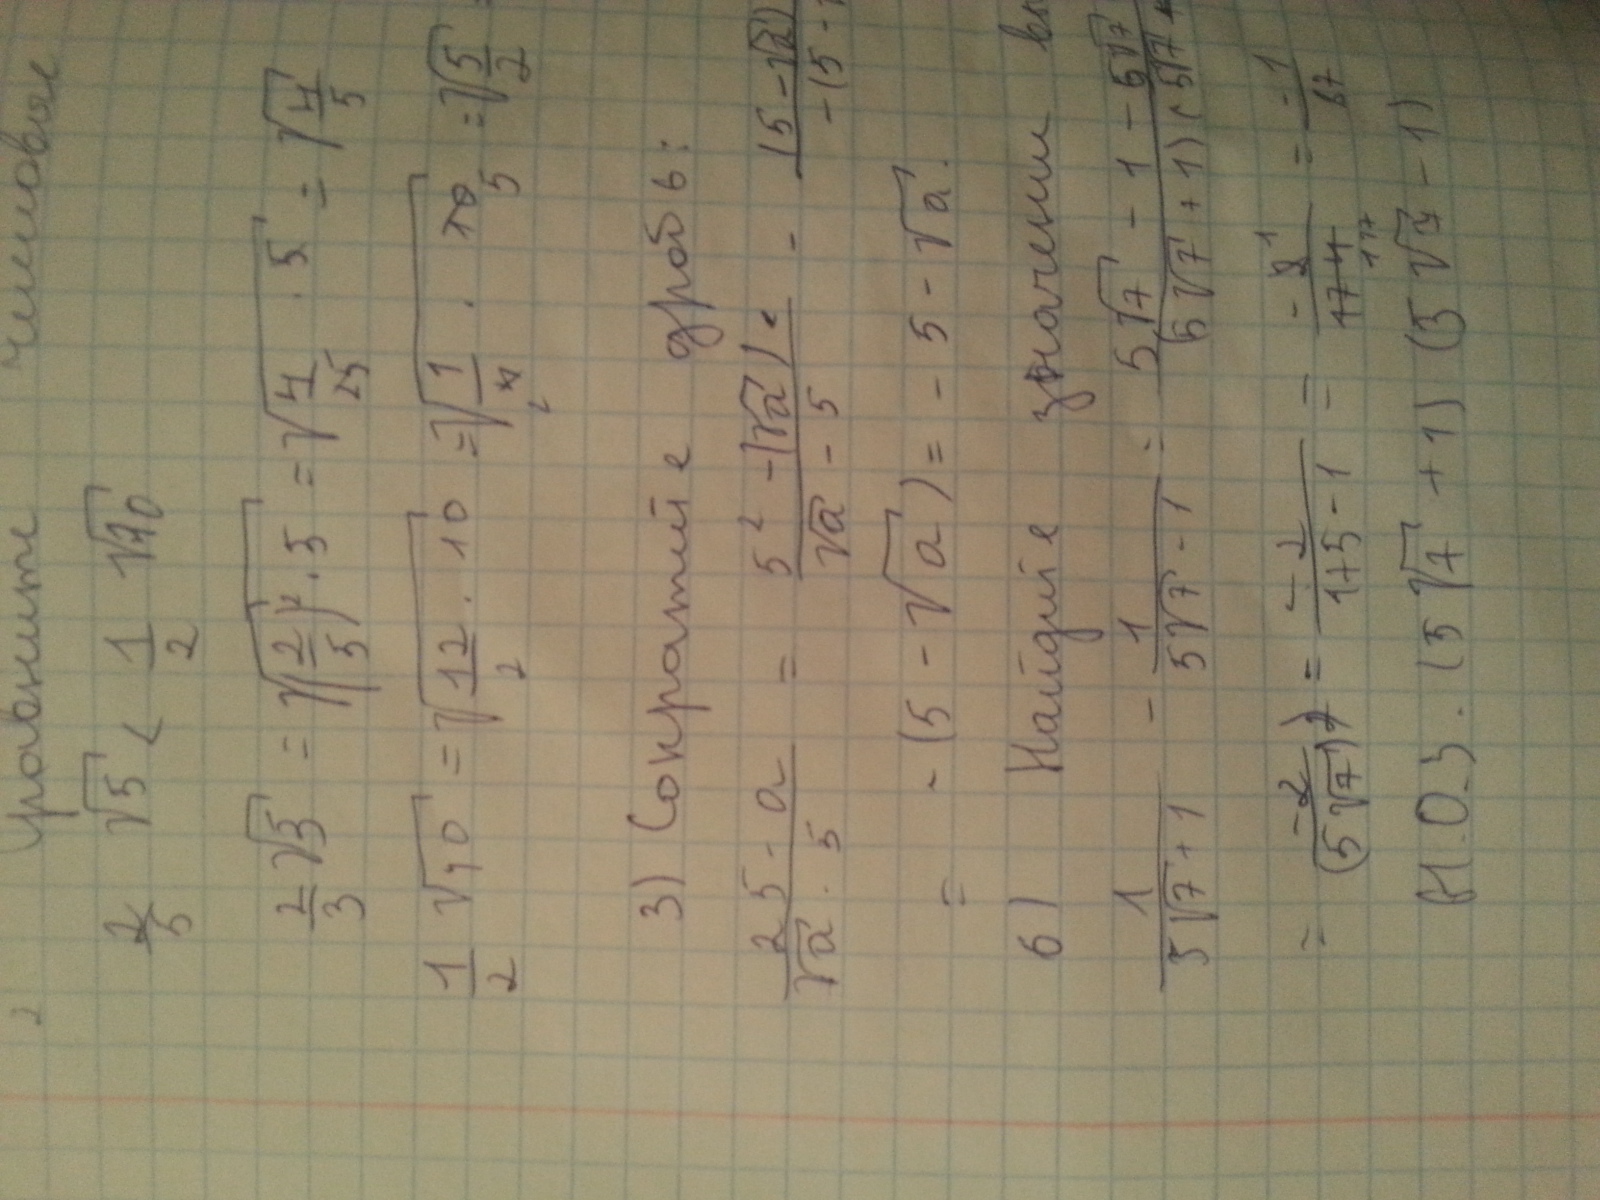 Сравните числовые
2/5 √5 < 1/2 √10
2/3 √5 = √((2/5)² · 5) = √(4/25 · 5) = √(4/5)
1/2 √10 = √(12/2 · 10) = √(1/4 · 10/5) = √(5/2) =
3) Сократите дробь:
(25 - a)/(√a · 5) = (5² - (√a)²)/(√a - 5) - (5 - √a)/(-(5 -
= - (5 - √a) = - 5 - √a.
6) Найдите значении
1/(5√7 + 1) - 1/(5√7 - 1) = (5√7 - 1 - 5√7)/((5√7 + 1)(5√7
= -2/(5√7)² = -2/(175 - 1) = = -1/87
(5√7 + 1) (5√7 - 1)